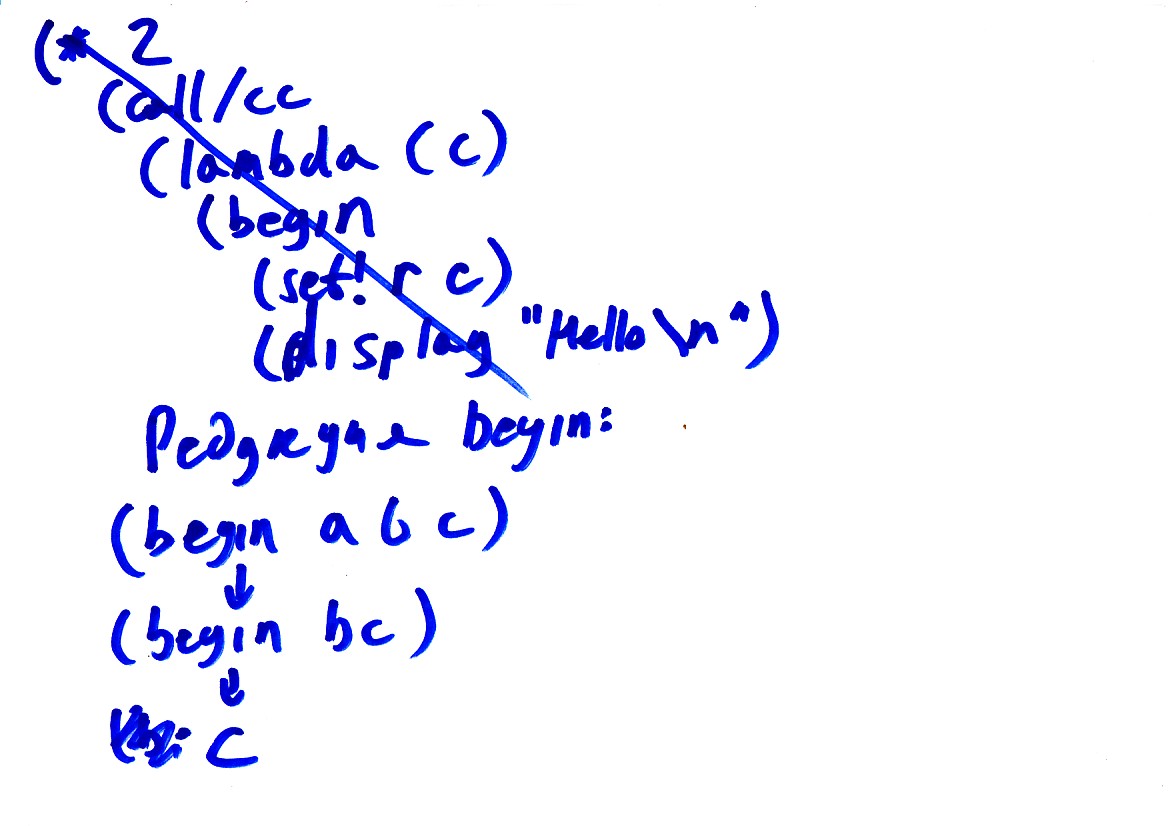 (* 2
(call/cc
(lambda (c)
(begin
(set! r c)
(display "Hello\n")
Редукция begin:
(begin a b c)
↓
(begin b c)
↓
c